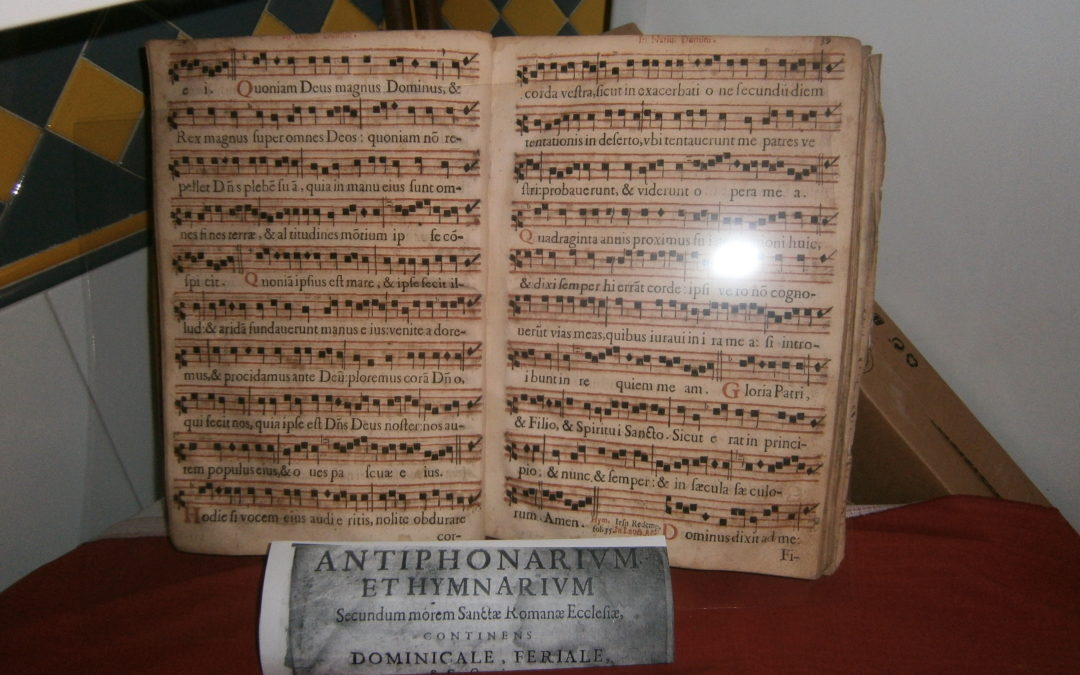 e i. Quoniam Deus magnus Dominus, &
Rex magnus super omnes Deos : quoniam nõ re-
pellet Dñs plebẽ suã, quia in manu eius sunt om-
nes fines terræ, & altitudines mõtium ip se cõ-
spi cit. Quoniã ipsius est mare, & ipse fecit il-
lud: & aridã fundauerunt manus eius: venite adore-
mus, & procidamus ante Deũ: ploremus corã Dño,
qui fecit nos, quia ipse est Dñs Deus noster: nos au-
tem populus eius, & o ues pa scuæ e ius.
Hodie si vocem eius audieritis, nolite obdurare
cor-
In Natiu. Domini.
corda vestra, sicut in exacerbati o ne secundũ diem
tentationis in deserto, vbi tentauerunt me patres ve
stri: probauerunt, & viderunt o pera me a.
Quadraginta annis proximus fu i huic,
& dixi semper hi errãt corde: ipsi ve ro nõ cogno-
uerũt vias meas, quibus iuraui in i ra me a: si intro-
ibunt in re quiem me am. Gloria Patri,
& Filio, & Spiritui Sancto. Sicut e rat in princi-
pio: & nunc, & semper: & in sæcula sæculo-
rum. Amen. Hym. Iesu Redemp. Dominus dixit ad me:
Fi-
ANTIPHONARIVM
ET HYMNARIVM
Secundum morem Sanctæ Romanæ Ecclesiæ,
CONTINENS
DOMINICALE, FERIALE,